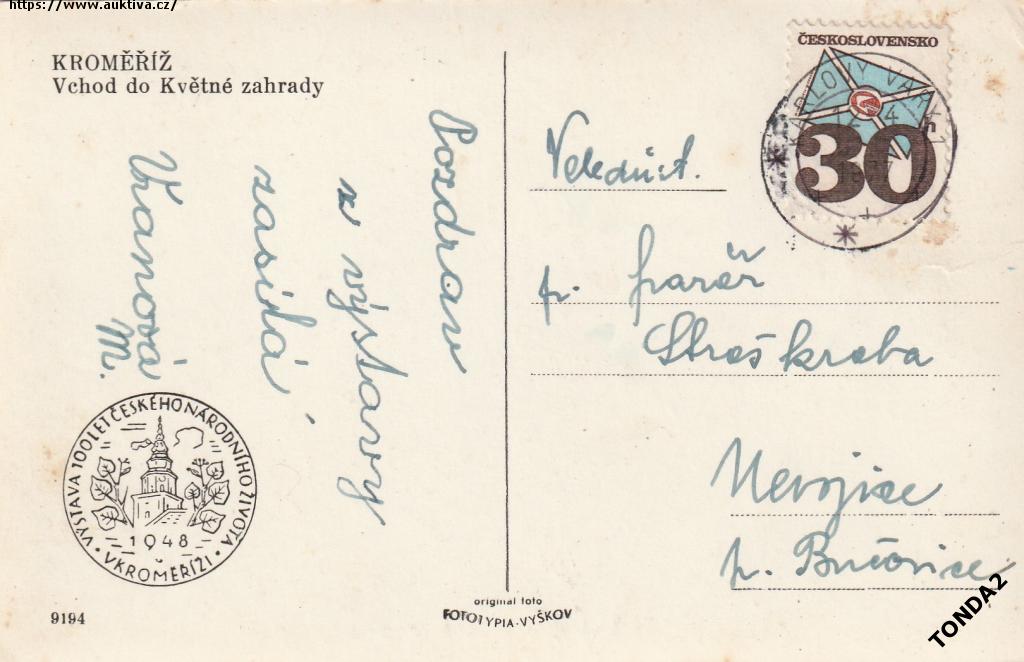 https://www.auktiva.cz/
KROMĚŘÍŽ
Vchod do Květné zahrady
Pozdrav
z výstavy
zasílá
Vranová
M.
VÝSTAVA 100 LET ČESKÉHO NÁRODNÍHO ŽIVOTA
1948
V KROMĚŘÍŽI
9194
original foto
FOTOTYPIA-VYŠKOV
ČESKOSLOVENSKO
30h
KARLOVY VARY 1
Veledůst.
p. farář
Stroškraba
Nevojice
p. Bučovice
TONDA2